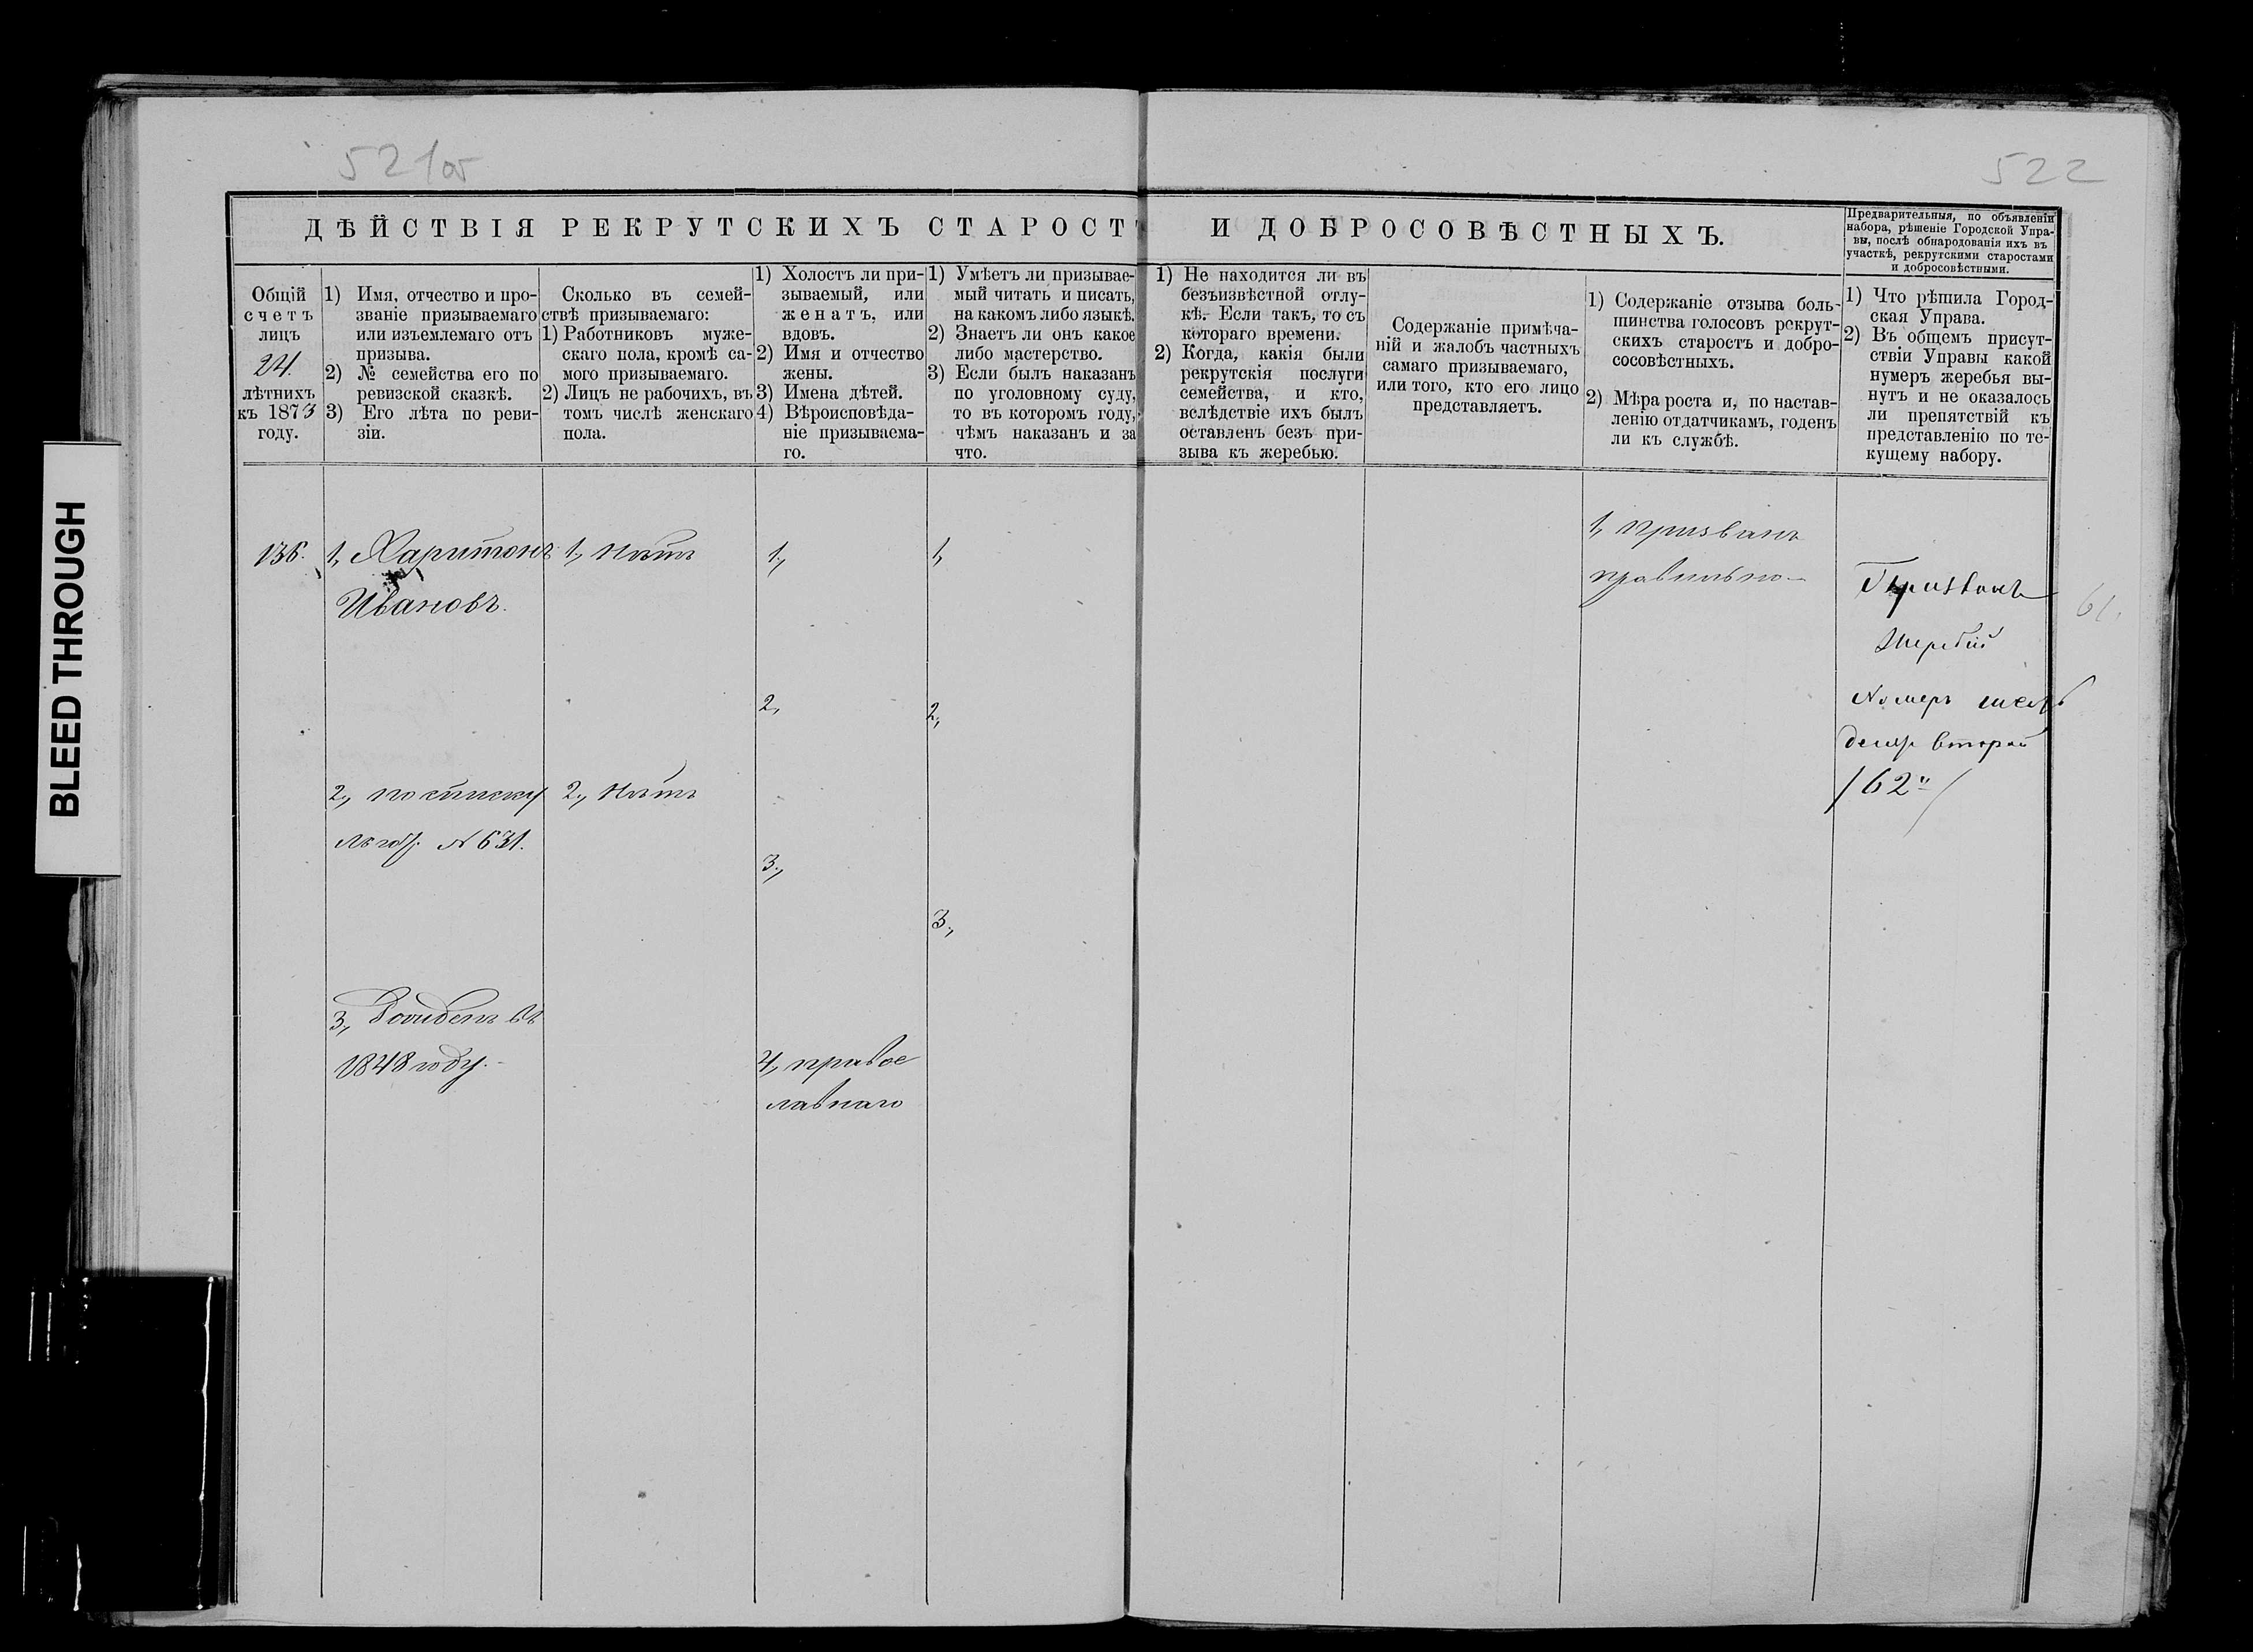 521об
522
ДѢЙСТВІЯ РЕКРУТСКИХЪ СТАРОСТЪ И ДОБРОСОВѢСТНЫХЪ.
Предварительныя, по объявленіи
набора, рѣшеніе Городской Упра-
вы, послѣ обнародованія ихъ въ
участкѣ, рекрутскими старостами
и добросовѣстными.
Общій
счетъ
лицъ
24.
лѣтнихъ
къ 1873
году.
1) Имя, отчество и про-
званіе призываемаго
или изъемлемаго отъ
призыва.
2) № семейства его по
ревизской сказкѣ.
3) Его лѣта по реви-
зіи.
Сколько въ семей-
ствѣ призываемаго:
1) Работниковъ муже-
скаго пола, кромѣ са-
мого призываемаго.
2) Лицъ не рабочихъ, въ
томъ числѣ женскаго
пола.
1) Холостъ ли при-
зываемый, или
женатъ, или
вдовъ.
2) Имя и отчество
жены.
3) Имена дѣтей.
4) Вѣроисповѣда-
ніе призываема-
го.
1) Умѣетъ ли призывае-
мый читать и писать,
на какомъ либо языкѣ.
2) Знаетъ ли онъ какое
либо мастерство.
3) Если былъ наказанъ
по уголовному суду,
то въ которомъ году,
чѣмъ наказанъ и за
что.
1) Не находится ли въ
безъизвѣстной отлу-
кѣ. Если такъ, то съ
котораго времени.
2) Когда, какія были
рекрутскія послуги
семейства, и кто,
вслѣдствіе ихъ былъ
оставленъ безъ при-
зыва къ жеребью.
Содержаніе примѣча-
ній и жалобъ частныхъ
самаго призываемаго,
или того, кто его лицо
представляетъ.
1) Содержаніе отзыва боль-
шинства голосовъ рекрут-
скихъ старостъ и добро-
сосовѣстныхъ.
2) Мѣра роста и, по настав-
ленію отдатчикамъ, годенъ
ли къ службѣ.
1) Что рѣшила Город-
ская Управа.
2) Въ общемъ присут-
ствіи Управы какой
нумеръ жеребья вы-
нутъ и не оказалось
ли препятствій къ
представленію по те-
кущему набору.
136.
1, Харитонъ
Ивановъ.
2, по списку
№ 631.
3, Рожденъ въ
1848 году.
1, нѣтъ
2, нѣтъ
1,
2,
3,
4, правос
лавнаго
1,
2,
3,
1, призванъ
правильно
Призванъ
Жеребій
Номеръ шесть
десят второй
/62й/
61.
BLEED THROUGH